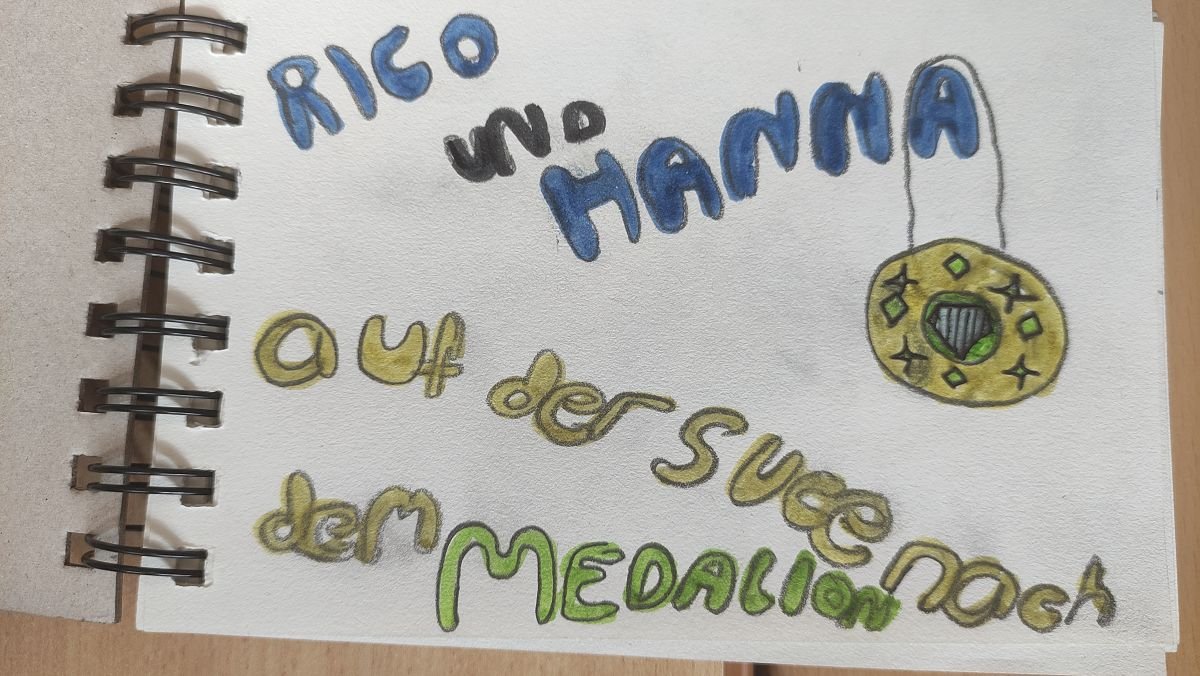 RICO
UND
HANNA
auf der suee nach
dem MEDALION